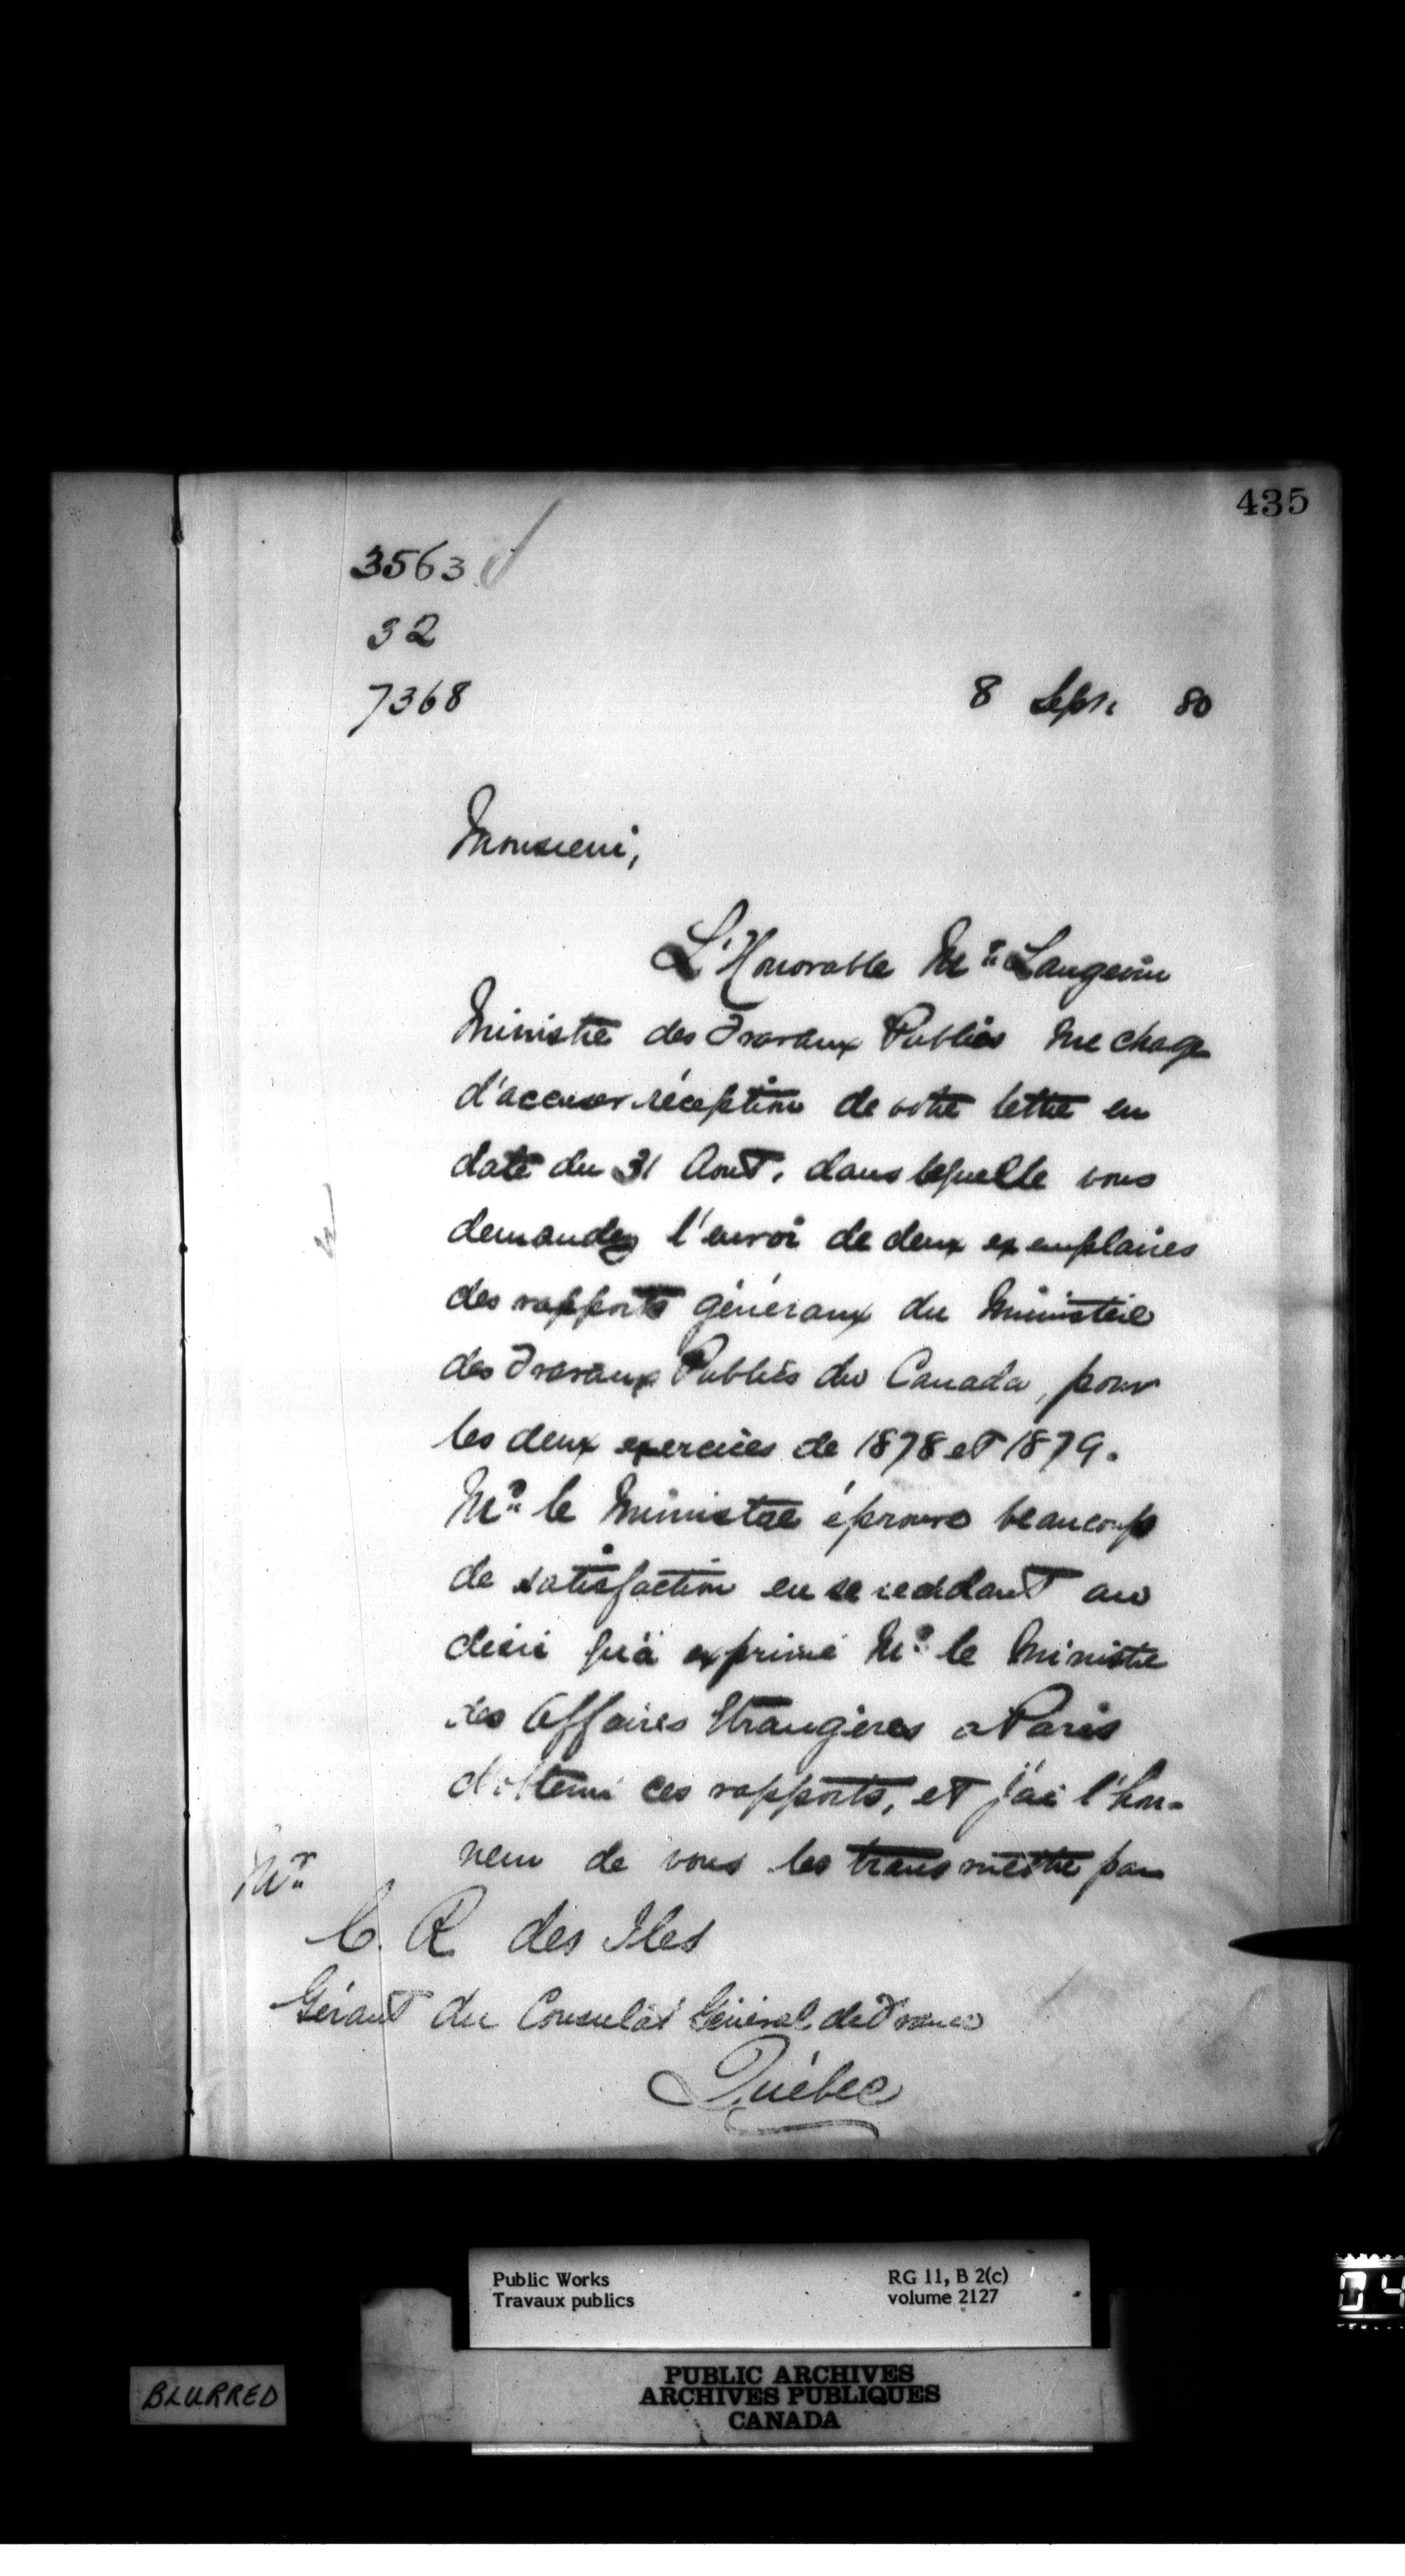 435
3563
32
7368
8 Sept. 80
Monsieur,
L'Honorable Mr. Langevin
Ministre des Travaux Publics me charge
d'accuser réception de votre lettre en
date du 31 Aout, dans lequelle vous
demandez l'envoi de deux exemplaires
des rapports généraux du Ministère
des Travaux Publics du Canada, pour
les deux exercices de 1878 et 1879.
Mr. le Ministre éprouve beaucoup
de satisfaction en se rendant au
désir qu'a exprimé Mr. le Ministre
des Affaires Etrangères a Paris
d'obtenir ces rapports, et j'ai l'hon-
neur de vous les transmettre par
Mr.
C. R. des Iles
Gérant du Consulat Général de France
Québec
Public Works
Travaux publics
RG 11, B 2(c)
volume 2127
BLURRED
PUBLIC ARCHIVES
ARCHIVES PUBLIQUES
CANADA
04